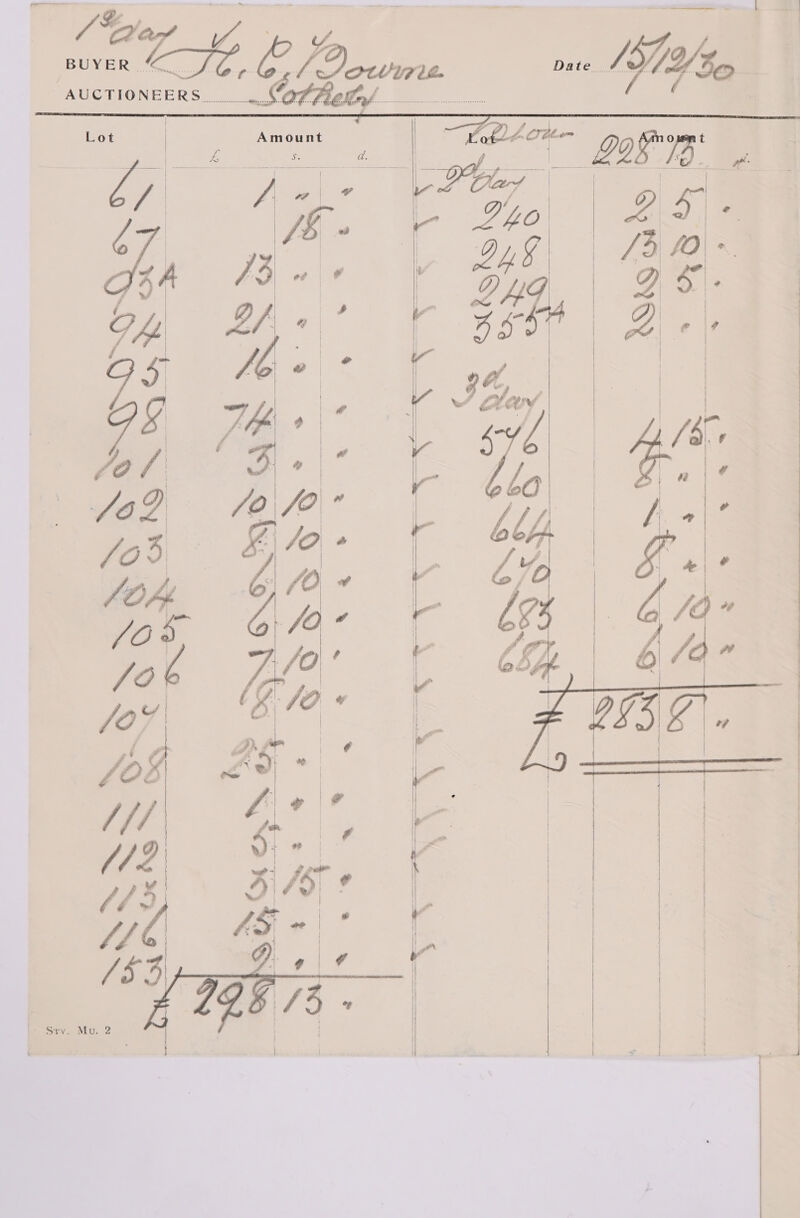 1st day
BUYER H. C. Bourne Date 15/12/30
AUCTIONEERS Sotheby
Lot Amount
£ s. d.
61 1 " "
67 18 "
93A 13 " "
94 21 " "
95 16 " "
98 74 " "
101 3 " "
102 10 10 "
103 8 10 "
104 6 10 "
105 6 10 "
106 7 10 "
107 8 10 "
108 25 " "
111 1 " "
112 5 " "
113 3 15 "
116 15 " "
153 2 " "
£ 228 13 "
Srv. Mu. 2
Lot Amount
228 13
2d day
240 2 5 "
248 13 10 "
249 2 5 "
355A 2 " "
3d day
576 4 15 "
660 8 " "
664 1 " "
670 8 " "
683 6 10 "
684 6 10 "
£ 283 8 "